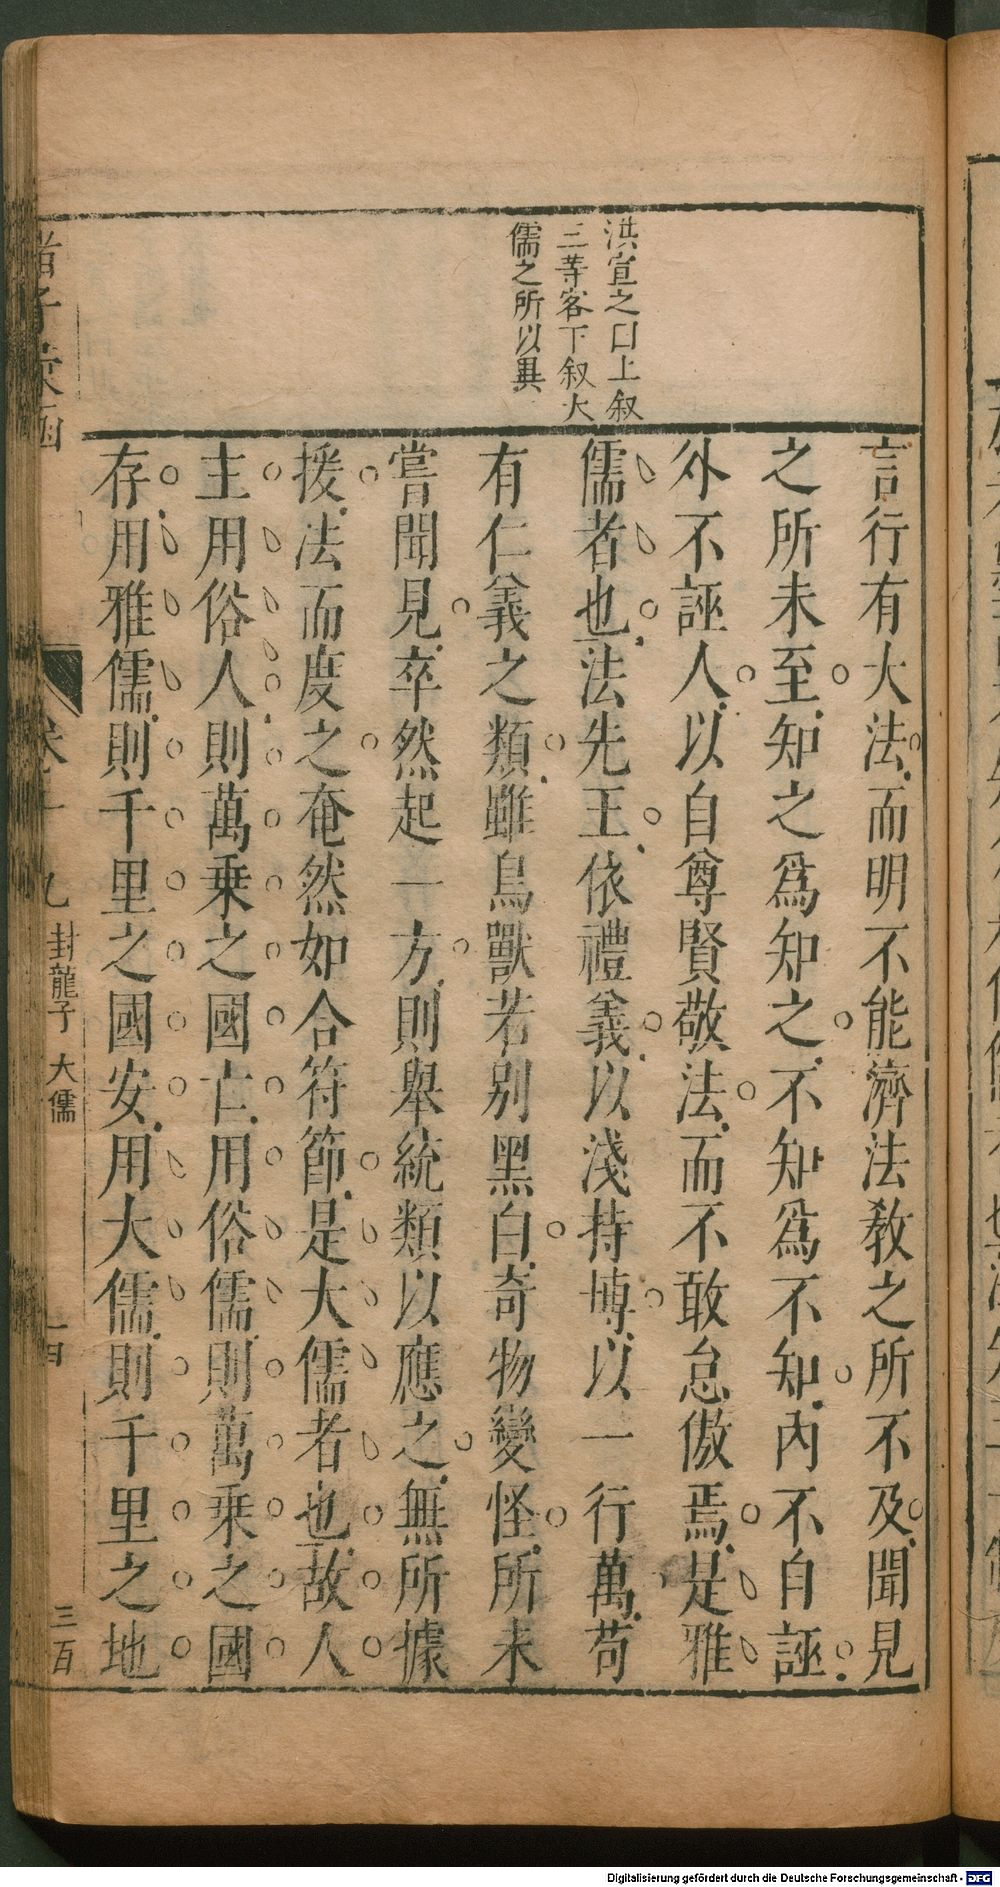 洪宣之曰上叙
三等客下叙大
儒之所以異
言行有大法而明不能濟法敎之所不及聞見
之所未至知之爲知之不知爲不知内不自誣
外不誣人以自尊賢敬法而不敢怠傲焉是雅
儒者也法先王依禮義以淺持博以一行萬苟
有仁義之類雖鳥獸若别黑白奇物變怪所未
嘗聞見卒然起一方則舉統類以應之無所據
援法而度之奄然如合符節是大儒者也故人
主用俗人則萬乗之國亡用俗儒則萬乗之國
存用雅儒則千里之國安用大儒則千里之地
諸子彙函
九 封龍子 大儒
三百
Digitalisierung gefördert durch die Deutsche Forschungsgemeinschaft - DFG